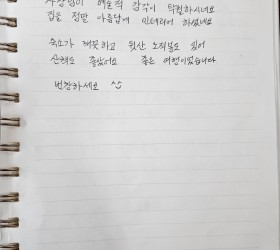 사장님이 예술적 감각이 탁월하시네요
집을 정말 아름답게 인테리어 하셨네요
숙소가 깨끗하고 뒷산 노적봉도 있어
산책도 좋았어요 좋은 여행이었습니다
번창하세요 ^^